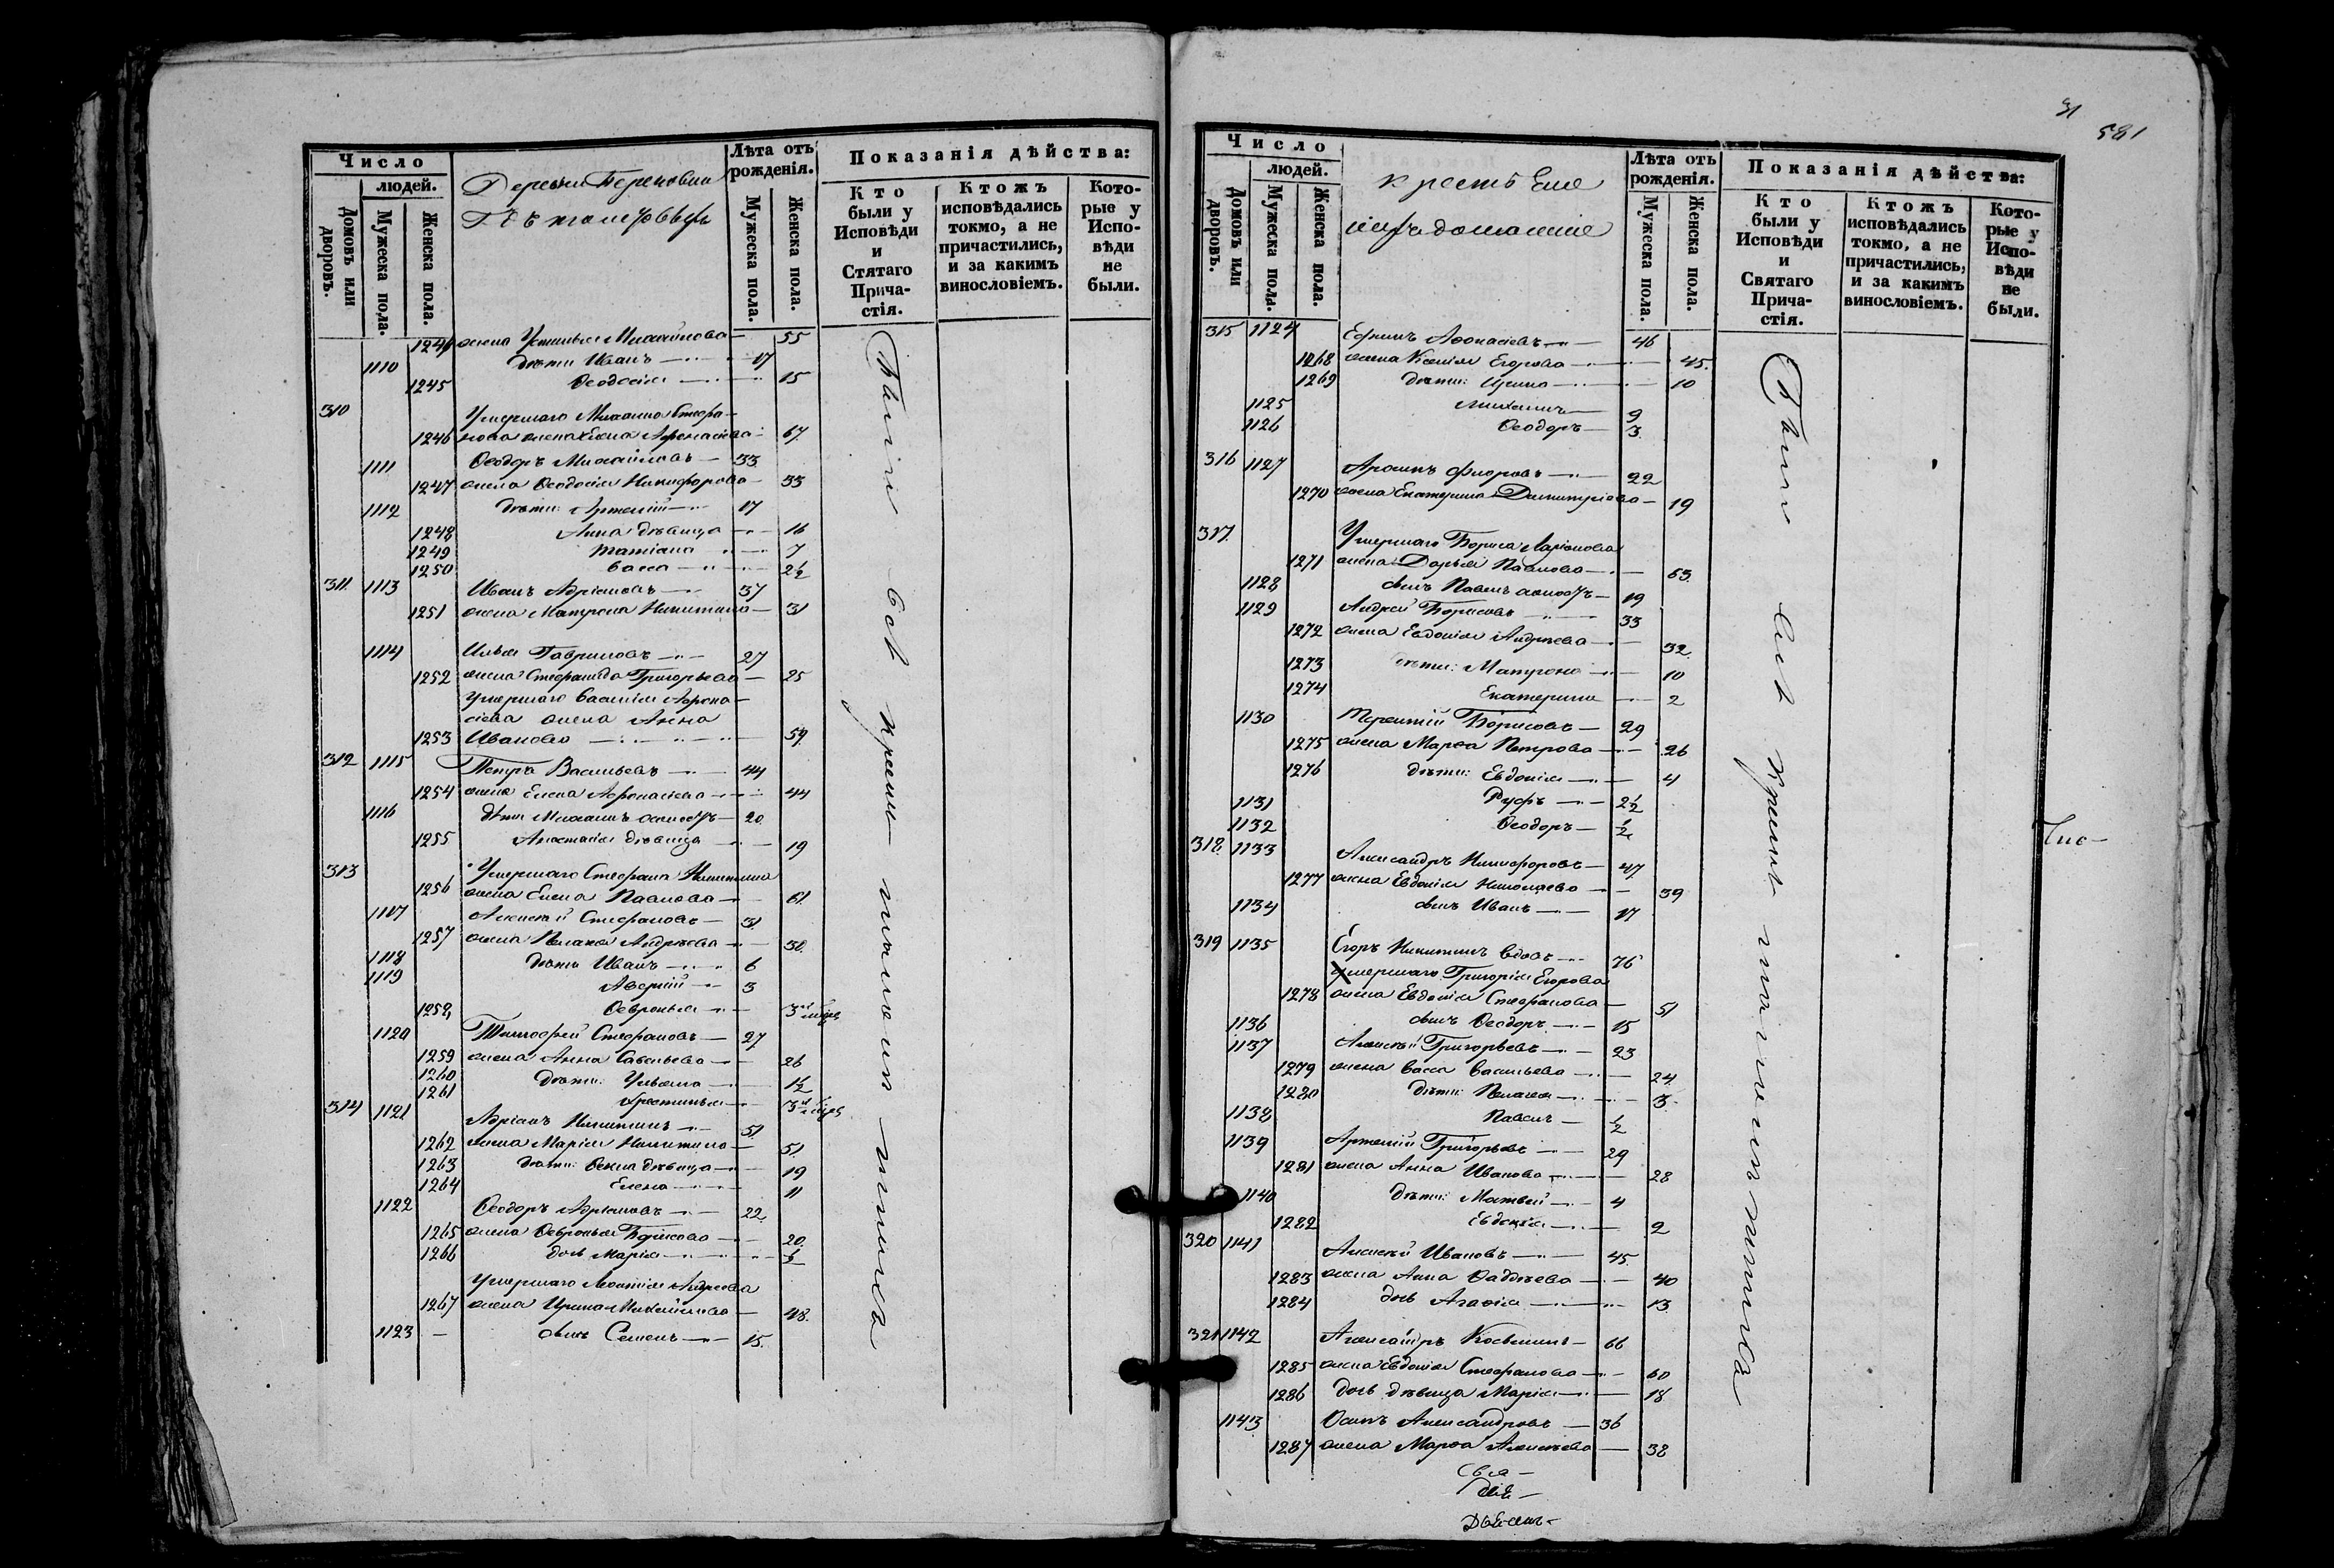 Число
людей.
Домовъ или дворовъ.
Мужеска пола.
Женска пола.
Деревни
Лѣта отъ рожденія.
Мужеска пола.
Женска пола.
Показанія дѣйства:
Кто были у Исповѣди и Стятаго Прича-стія.
Ктожъ исповѣдались токмо, а не причастились, и за какимъ винословіемъ.
Кото-рые у Испо-вѣди не были.
1244 жена Устинья Михайлова 55
1110 дѣти: Иванъ 17
1245 Ѳеодосія 15
310 Умершаго Михаила Стефа-
1246 нова жена Елена Аѳонасіева 67
1111 Ѳеодоръ Михайловъ 33
1247 жена Ѳеодосія Никифорова 33
1112 дѣти: Артемій 17
1248 Анна дѣвица 16
1249 Татіана 7
1250 Васса 2½
311 1113 Иванъ Адріановъ 37
1251 жена Матрона Никитина 31
1114 Илья Гавриловъ 27
1252 жена Стефанида Григорьева 25
умершаго Василія Аѳона-
сіева жена Анна
1253 Иванова 59
312 1115 Петръ Васильевъ 44
1254 жена Елена Аѳонасіева 44
1116 дѣти Михаилъ холостъ 20
1255 Анастасія дѣвица 19
313 Умершаго Стефана Никитина
1256 жена Елена Павлова 61
1117 Алексѣй Стефановъ 31
1257 жена Пелагея Андреева 30
1118 дѣти Иванъ 6
1119 Аверкій 3
1258 Ѳевронья 3
1120 Тимоѳей Стефановъ 27
1259 жена Анна Савельева 26
1260 дѣти: Ульяна 1½
1261 Христинья 3
314 1121 Адріанъ Никитинъ 51
1262 жена Марія Никитина 51
1263 дѣти: Ѳекла дѣвица 19
1264 Елена 11
1122 Ѳеодоръ Адріановъ 22
1265 жена Ѳевронья Борисова 20
1266 дочь Марія ½
умершаго
1267 жена Ирина Михайлова 48
1123 сынъ Семенъ 15
Были всѣ кромѣ малолѣтнихъ
31
581
Число
людей.
Домовъ или дворовъ.
Мужеска пола.
Женска пола.
крестьяне
Лѣта отъ рожденія.
Мужеска пола.
Женска пола.
Показанія дѣйства:
Кто были у Исповѣди и Святаго Прича-стія.
Ктожъ исповѣдались токмо, а не причастились, и за какимъ винословіемъ.
Кото-рые у Испо-вѣди не были.
315 1124 Ефимъ Аѳонасіевъ 46
1268 жена Ксенія Егорова 45
1269 дѣти: Ирина 10
1125 Михаилъ 9
1126 Ѳеодоръ 3
316 1127 Флоровъ 22
1270 жена Екатерина Димитріева 19
317 Умершаго Бориса Ларіонова
1271 жена Дарья Павлова 63
1128 сынъ Павелъ холостъ 19
1129 Андрей Борисовъ 33
1272 жена Евдокія Андреева 32
1273 дѣти: Матрона 10
1274 Екатерина 2
1130 Терентій Борисовъ 29
1275 жена Марѳа Петрова 26
1276 дѣти: Евдокія 4
1131 Руфъ 2½
1132 Ѳеодоръ ½
318 1133 Александръ Никифоровъ 47
1277 жена Евдокія Николаева 39
1134 сынъ Иванъ 17
319 1135 Егоръ Никитинъ вдовъ 76
умершаго Григорія Егорова
1278 жена Евдокія Стефанова 51
1136 сынъ Ѳеодоръ 15
1137 Алексѣй Григорьевъ 23
1279 жена Васса Васильева 24
1280 дѣти: Пелагея 3
1138 Павелъ ½
1139 Артемій Григорьевъ 29
1281 жена Анна Иванова 28
1140 дѣти: Матвей 4
1282 Евдокія 2
320 1141 Алексѣй Ивановъ 45
1283 жена Анна Ѳаддѣева 40
1284 дочь Агаѳія 13
321 1142 Александръ Косьминъ 66
1285 жена Евдокія Стефанова 60
1286 дочь дѣвица Марія 18
1143 Осипъ Александровъ 36
1287 жена Марѳа Алексѣева 38
Были всѣ кромѣ малолѣтнихъ